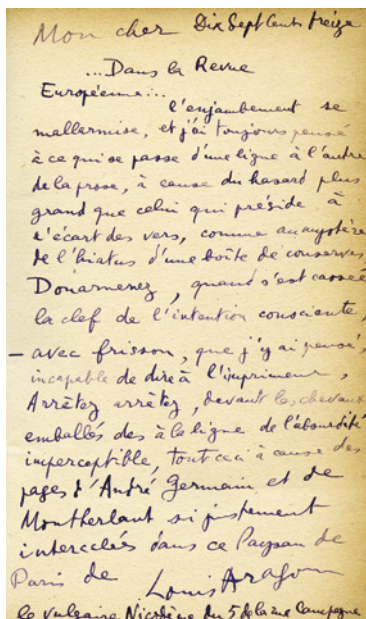 Mon cher Dix Sept Cent treize
...Dans la Revue
Européenne...
l'enjambement se
mallarmise, et j'ai toujours pensé
à ce qui se passe d'une ligne à l'autre
de la prose, à cause du hasard plus
grand que celui qui préside à
l'écart des vers, comme au mystère
de l'hiatus d'une boîte de conserves
Douarnenez, quand s'est cassée
la clef de l'intention consciente,
– avec frisson, que j'y ai pensé,
incapable de dire à l'imprimeur,
Arrêtez arrêtez, devant les chevaux
emballés des à la ligne de l'absurdité
imperceptible, tout ceci à cause des
pages d'André Germain et de
Montherlant si justement
intercalés dans ce Paysan de
Paris de Louis Aragon
le vulgaire Nicodème du 5 de la rue Campagne